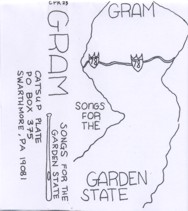 CPR 33
GRAM
SONGS FOR THE
GARDEN STATE
CATSUP PLATE
PO BOX 375
SWARTHMORE, PA 19081
GRAM
SONGS
FOR
THE
GARDEN
STATE